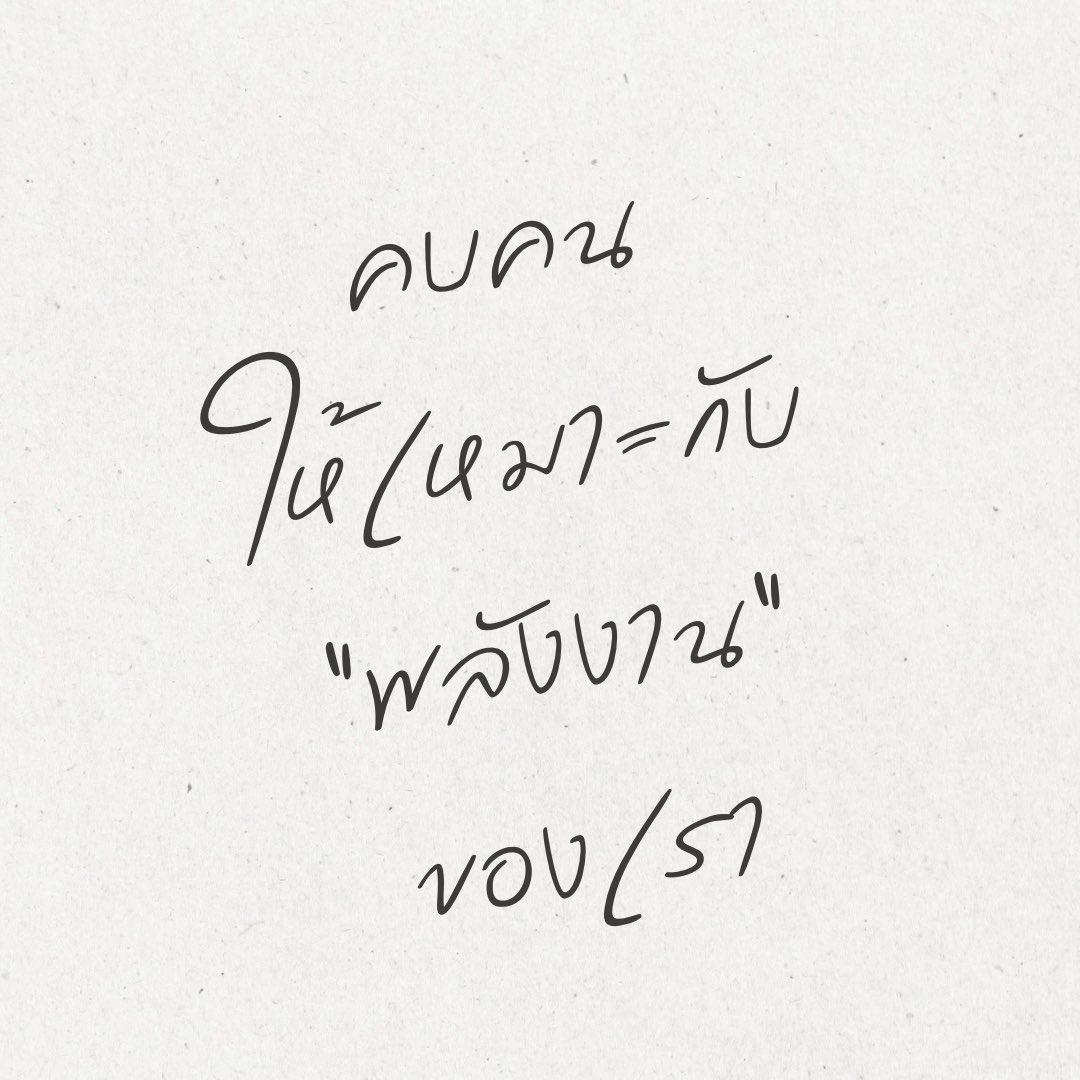 คบคน
ให้เหมาะกับ
"พลังงาน"
ของเรา